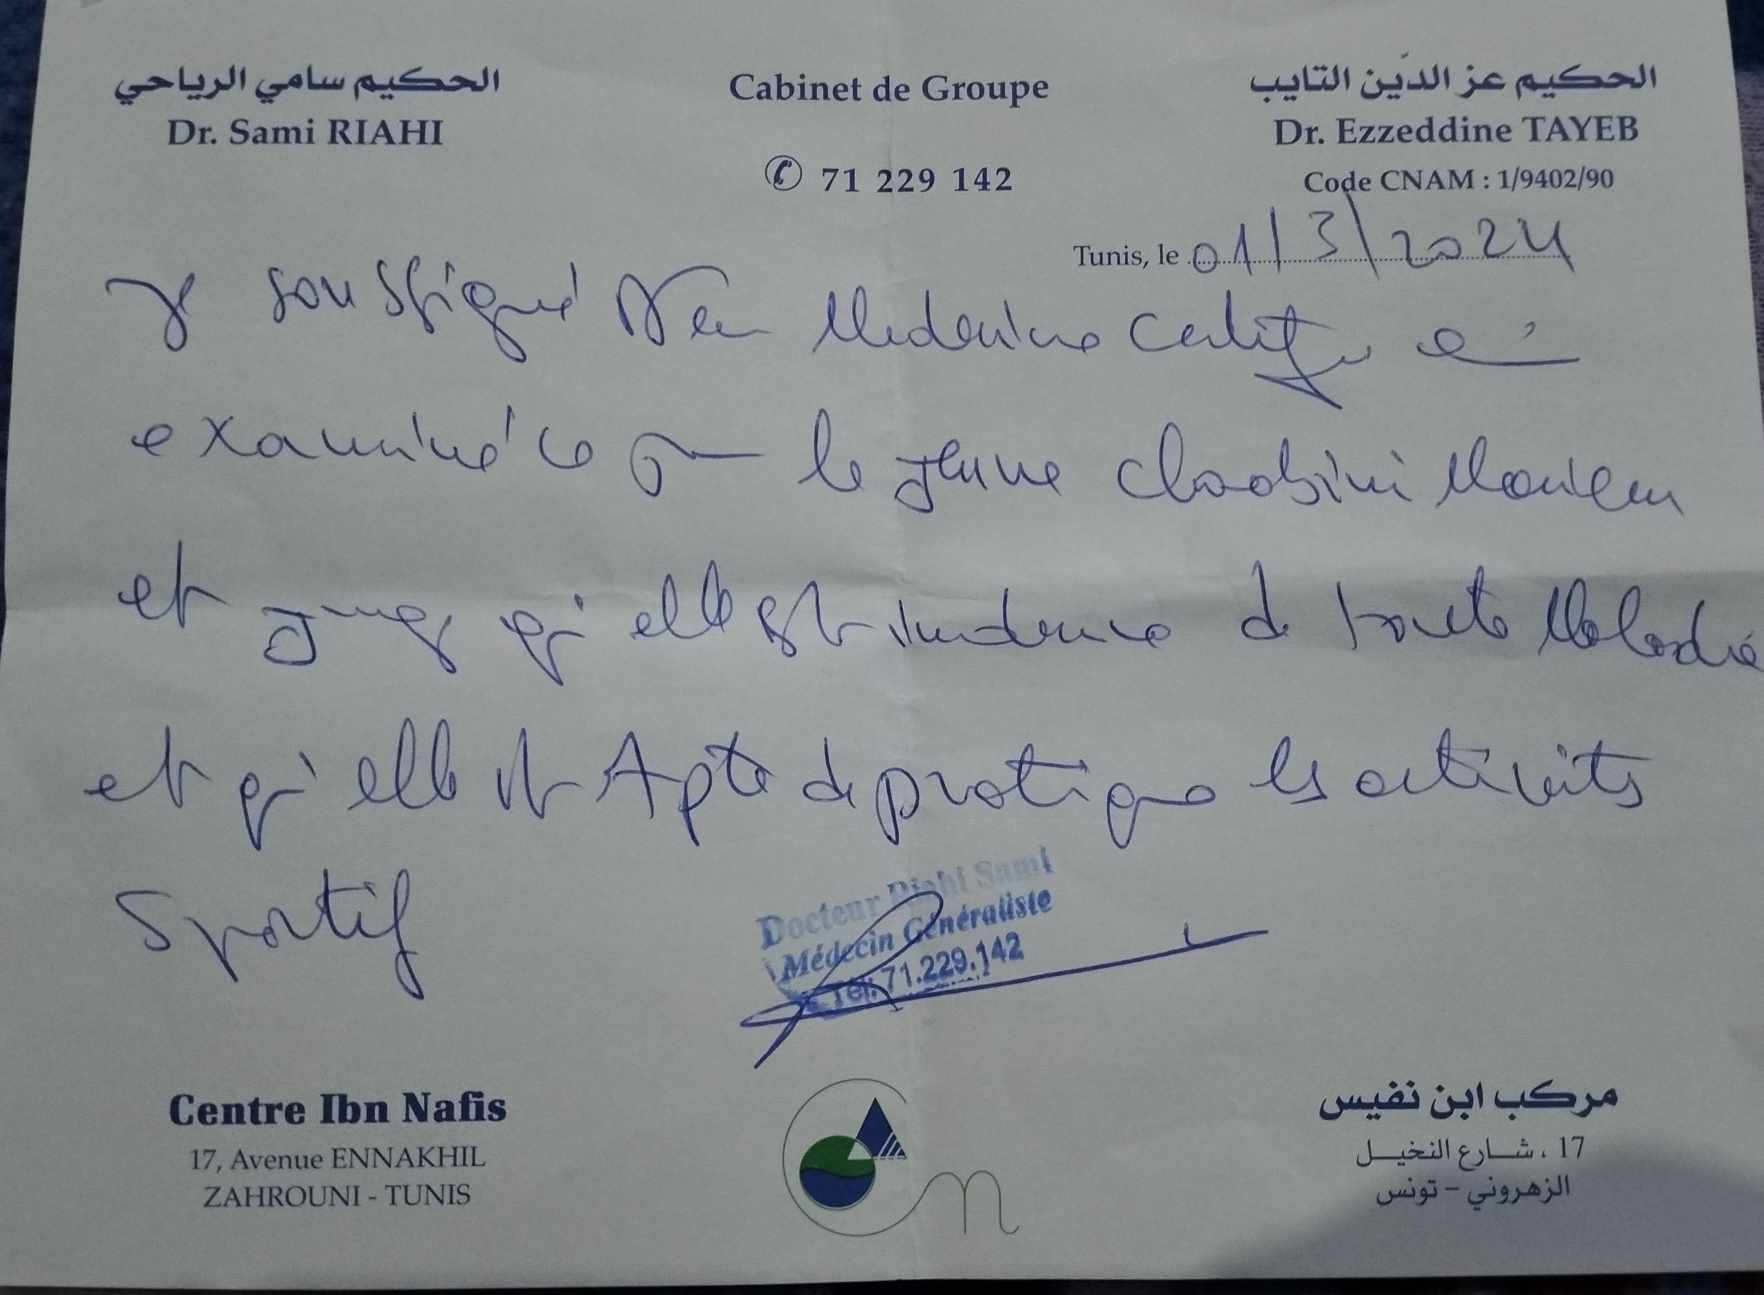 الحكيم سامي الرياحي
Dr. Sami RIAHI
Cabinet de Groupe
✆ 71 229 142
الحكيم عز الدّين التايب
Dr. Ezzeddine TAYEB
Code CNAM : 1/9402/90
Tunis, le 01/3/2024
Je soussigné Dr en Medecine certifie
examiné ce jour le jeune
et juge qu'elle est indemne de toute Maladie
et qu'elle est Apte de pratique les activités
Sportif
Docteur Riahi Sami
Médecin Généraliste
Tél: 71.229.142
Centre Ibn Nafis
17, Avenue ENNAKHIL
ZAHROUNI - TUNIS
مركب ابن نفيس
17 ، شارع النخيل
الزهروني - تونس